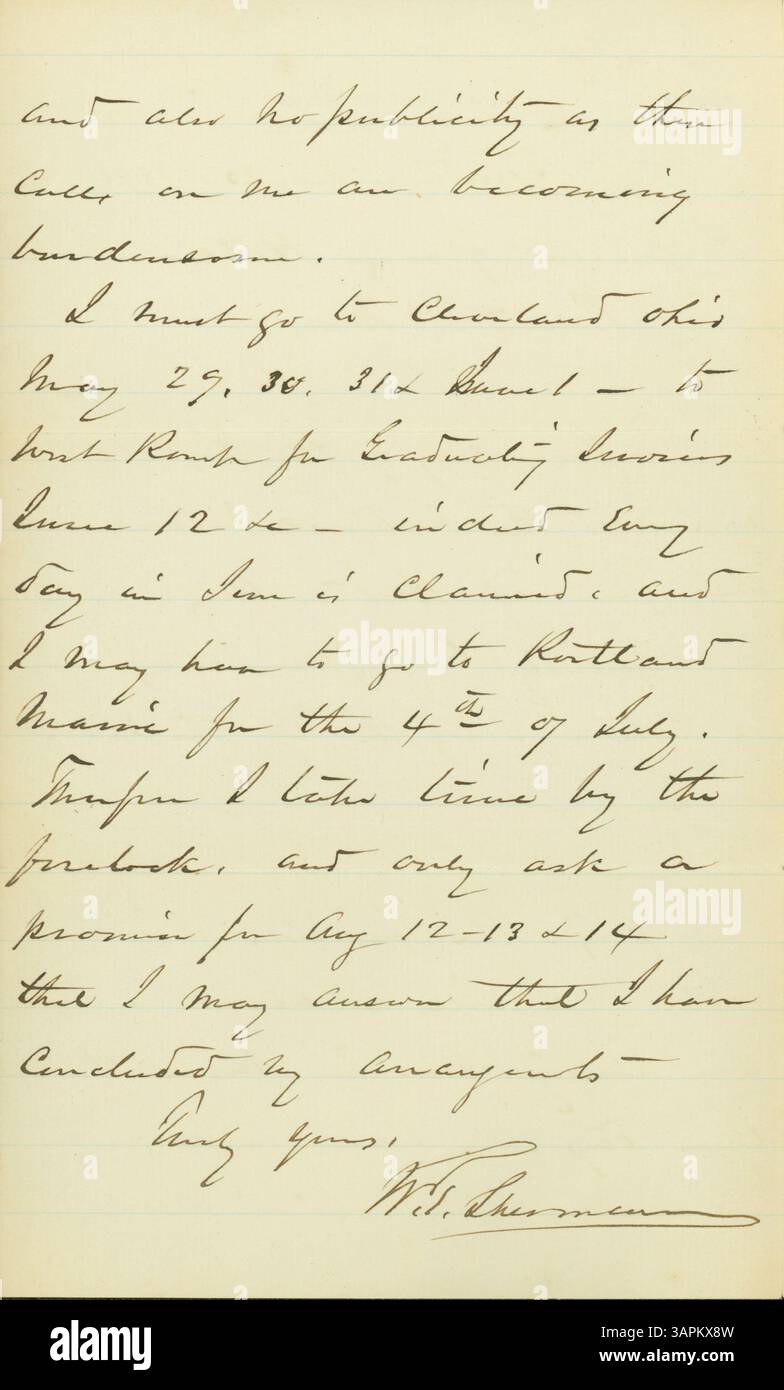 and also no publicity as these
calls on me are becoming
burdensome.
I must go to Cleveland Ohio
May 29, 30, 31 & June 1 — to
West Point for Graduating
June 12 &c — indeed Every
day in June is claimed, and
I may have to go to Portland
Maine for the 4th of July.
Therefore I take time by the
forelock, and only ask a
promise for Aug 12-13 & 14
that I may answer that I have
concluded my arrangents —
Truly yours,
W.T. Sherman
alamy
alamy
Image ID: 3APKX8W
www.alamy.com